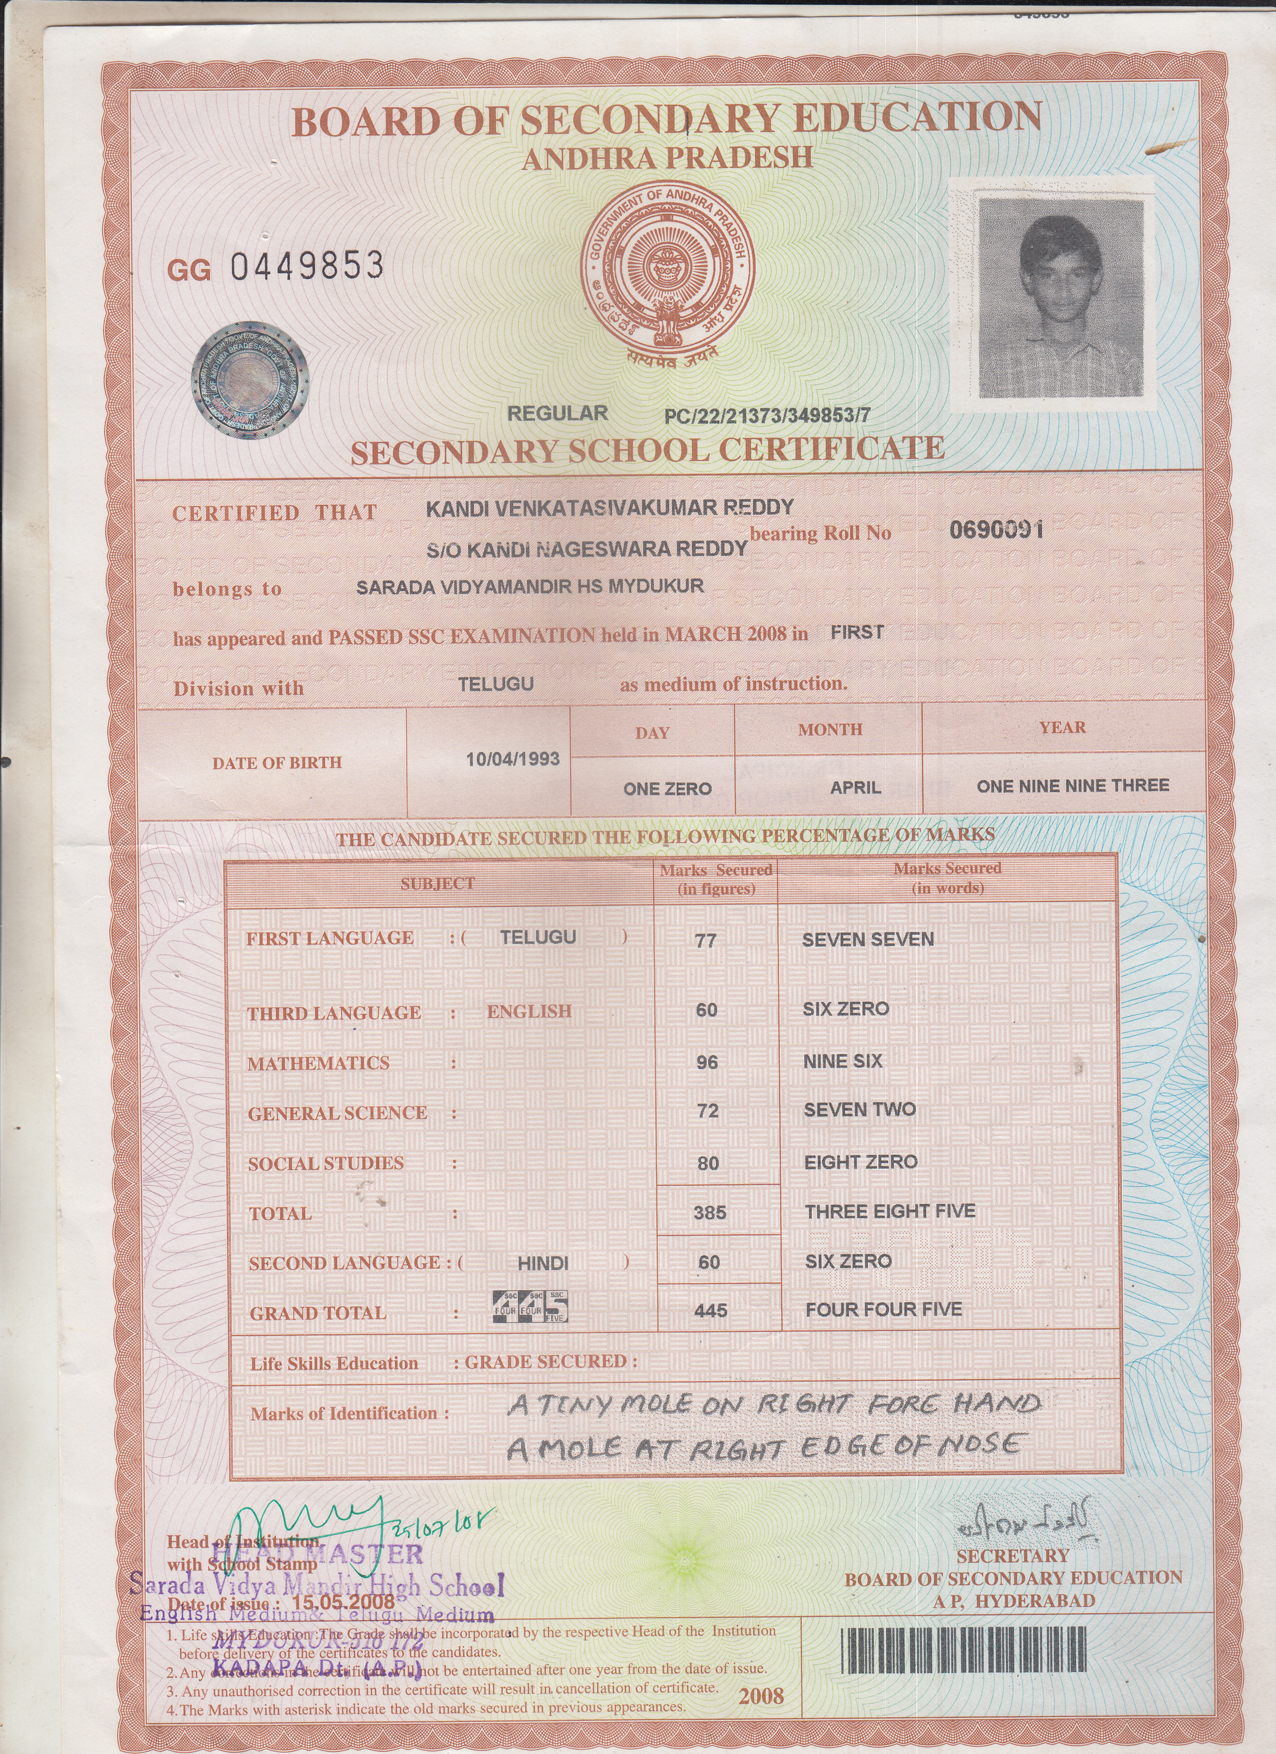 BOARD OF SECONDARY EDUCATION
ANDHRA PRADESH
GOVERNMENT OF ANDHRA PRADESH
सत्यमेव जयते
GG 0449853
REGULAR PC/22/21373/349853/7
SECONDARY SCHOOL CERTIFICATE
CERTIFIED THAT KANDI VENKATASIVAKUMAR REDDY
S/O KANDI NAGESWARA REDDY bearing Roll No 0690091
belongs to SARADA VIDYAMANDIR HS MYDUKUR
has appeared and PASSED SSC EXAMINATION held in MARCH 2008 in FIRST
Division with TELUGU as medium of instruction.
DAY MONTH YEAR
DATE OF BIRTH 10/04/1993
ONE ZERO APRIL ONE NINE NINE THREE
THE CANDIDATE SECURED THE FOLLOWING PERCENTAGE OF MARKS
SUBJECT Marks Secured (in figures) Marks Secured (in words)
FIRST LANGUAGE : ( TELUGU ) 77 SEVEN SEVEN
THIRD LANGUAGE : ENGLISH 60 SIX ZERO
MATHEMATICS : 96 NINE SIX
GENERAL SCIENCE : 72 SEVEN TWO
SOCIAL STUDIES : 80 EIGHT ZERO
TOTAL : 385 THREE EIGHT FIVE
SECOND LANGUAGE : ( HINDI ) 60 SIX ZERO
GRAND TOTAL : 445 445 FOUR FOUR FIVE
Life Skills Education : GRADE SECURED :
Marks of Identification : A TINY MOLE ON RIGHT FORE HAND
A MOLE AT RIGHT EDGE OF NOSE
25/07/08
Head of Institution
with School Stamp
HEAD MASTER
Sarada Vidya Mandir High School
Date of issue : 15.05.2008
English Medium & Telugu Medium
MYDUKUR-516 172
KADAPA Dt. (A.P.)
SECRETARY
BOARD OF SECONDARY EDUCATION
A P, HYDERABAD
1. Life skills Education :The Grade shall be incorporated by the respective Head of the Institution
before delivery of the certificates to the candidates.
2. Any corrections in the certificate will not be entertained after one year from the date of issue.
3. Any unauthorised correction in the certificate will result in cancellation of certificate.
4. The Marks with asterisk indicate the old marks secured in previous appearances.
2008